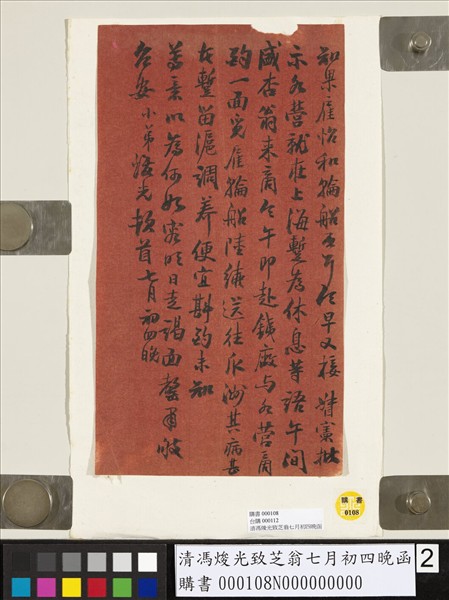 雇怡和輪船今早又接督憲批
示各營就在上海暫為休息等語午間
盛杏翁來商今午即赴鐵廠与各營商
酌一面雇輪船陸續送往瓜洲其病
在暫留滬調养便宜斟酌未知
尊意以為何如容明日走謁面罄
台安小弟焌光頓首七月初四晚
購書 000108
台購 000112
清馮焌光致芝翁七月初四晚函
購書
0108
清馮焌光致芝翁七月初四晚函 2
購書 000108N000000000